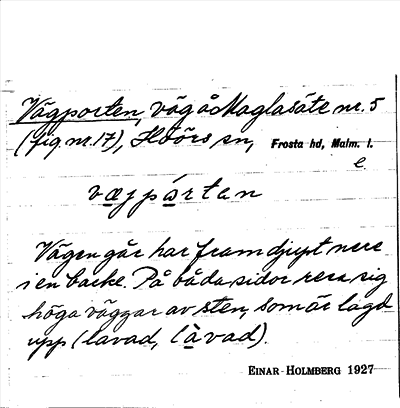 Vägporten, väg å Maglasäte nr. 5
(fig nr. 17), Höörs sn, Frosta hd, Malm. l.
e.
væjpártan
Vägen går här fram djupt nere
i en backe. På båda sidor resa sig
höga väggar av sten, som är lagd
upp (lavad, làvad).
EINAR HOLMBERG 1927